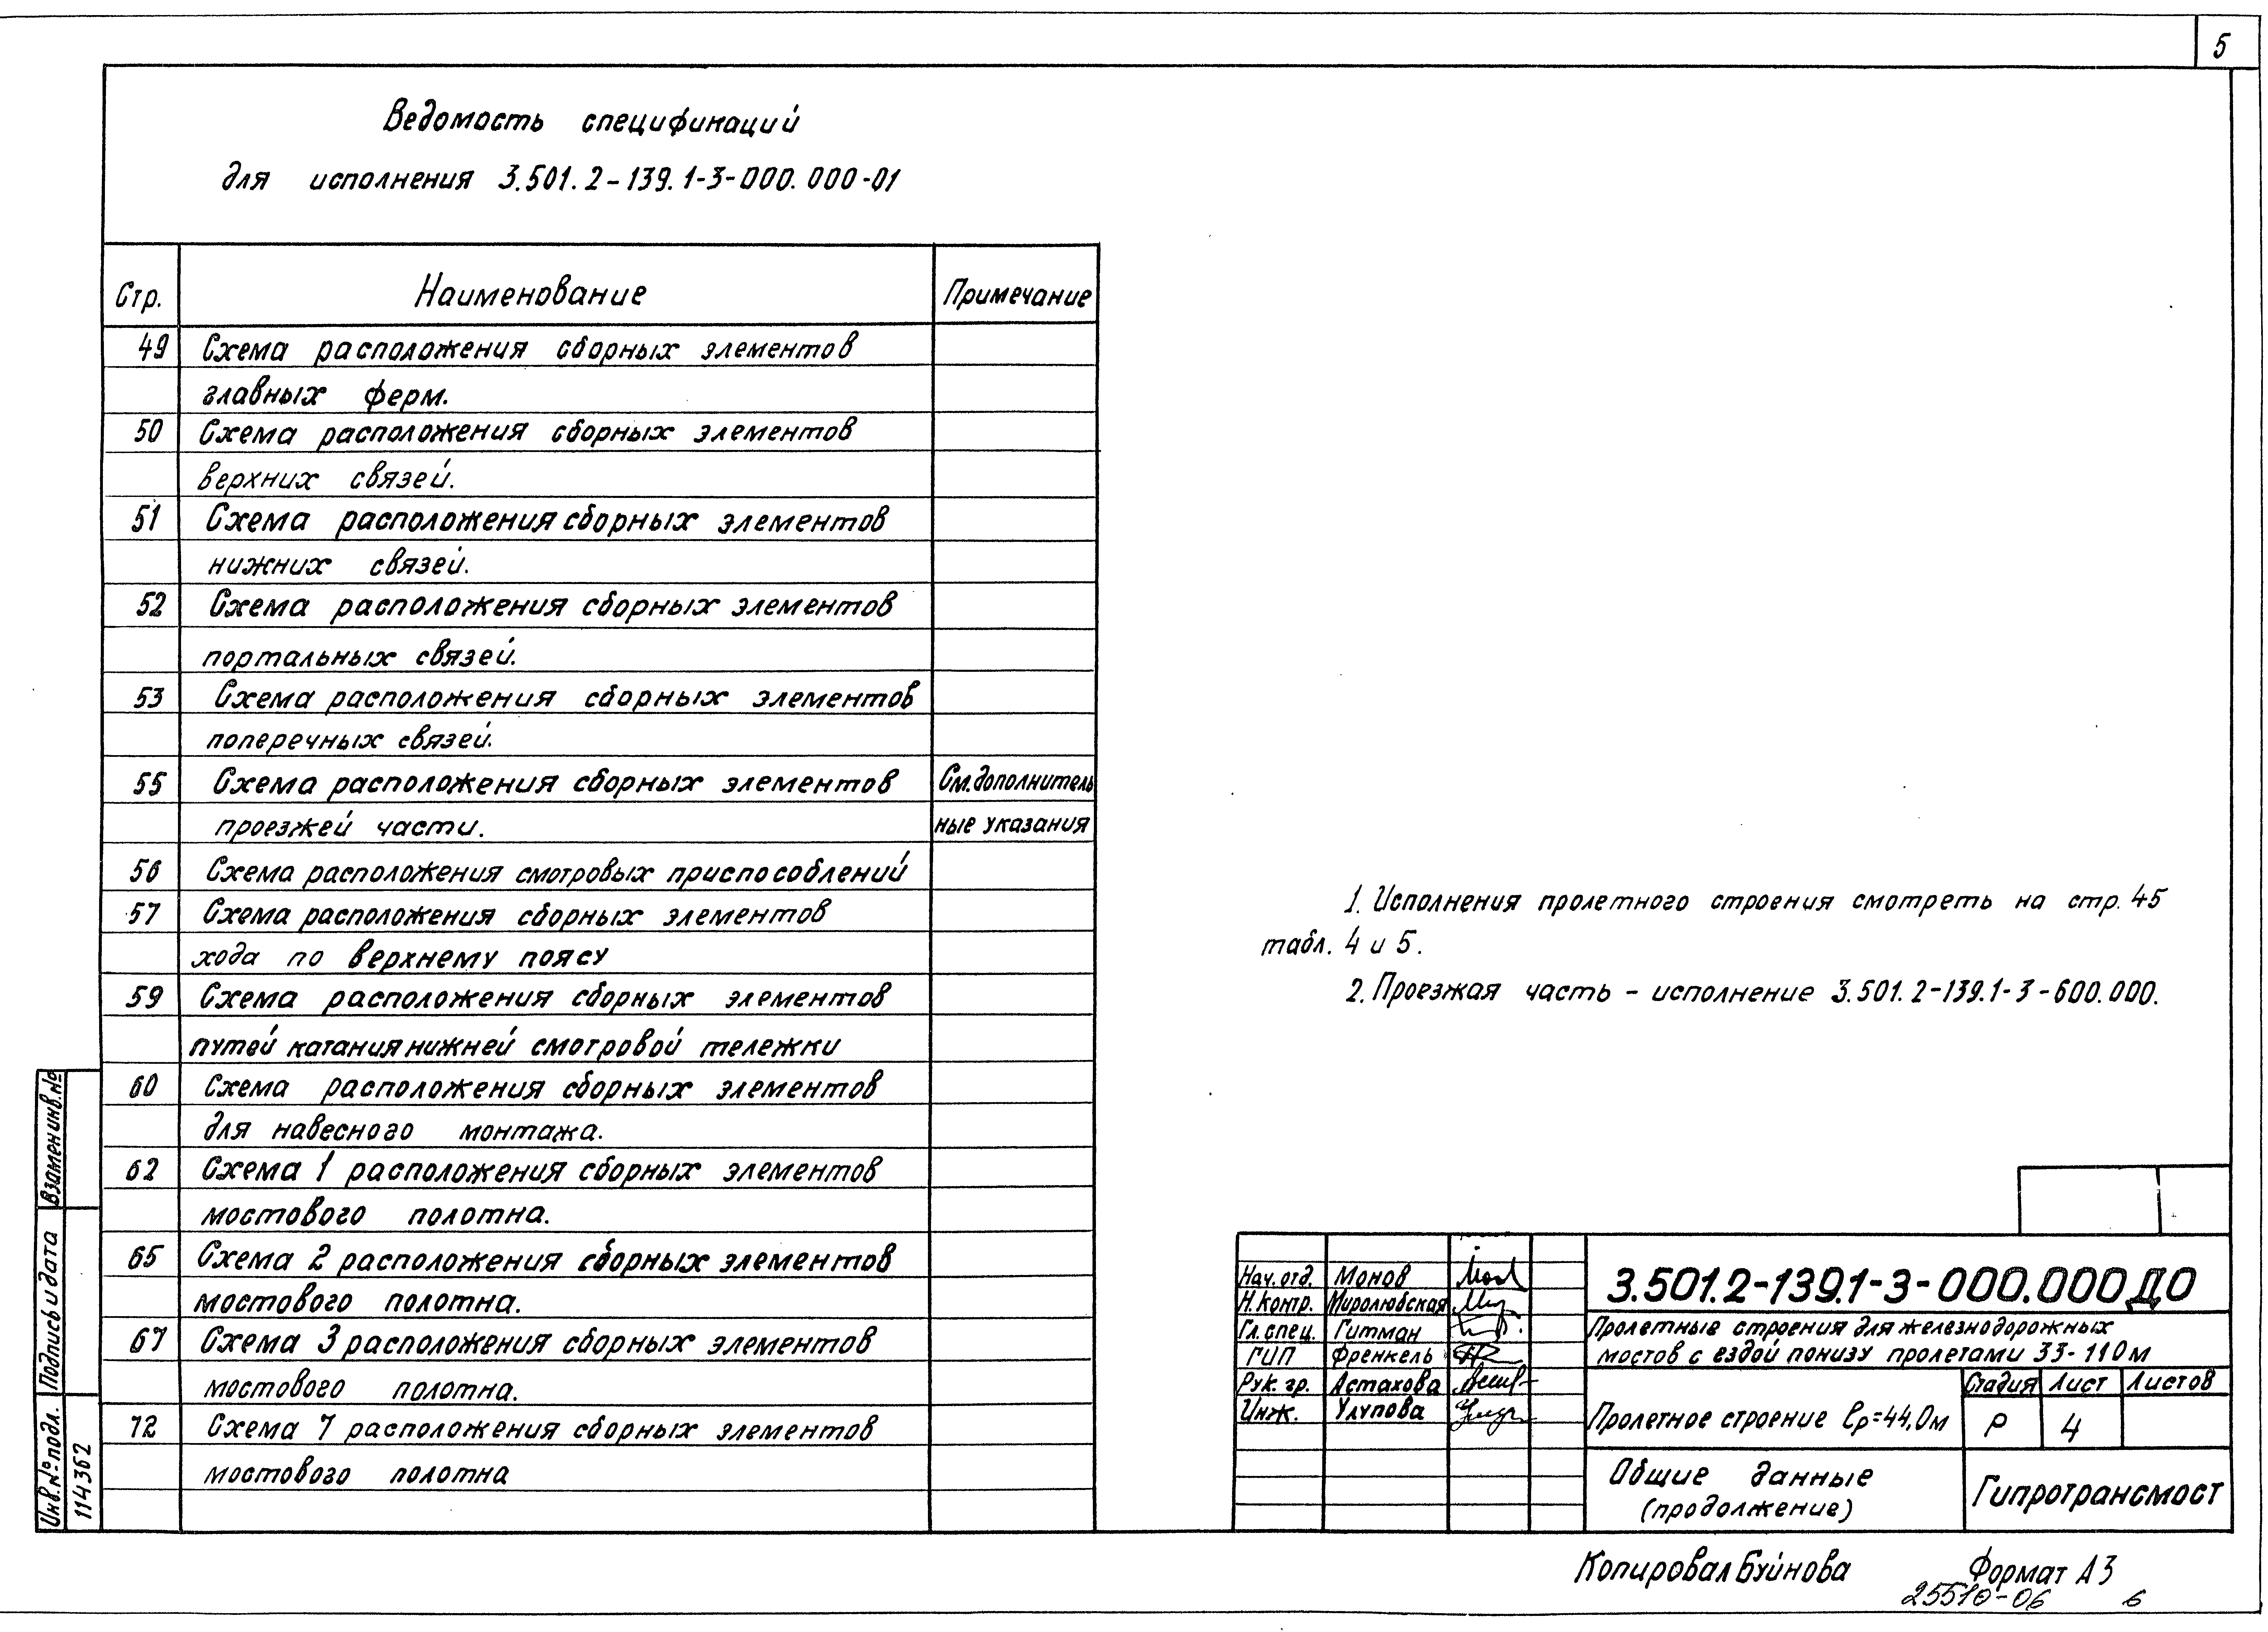 5
Ведомость спецификаций
для исполнения 3.501.2-139.1-3-000.000-01
Стр. Наименование Примечание
49 Схема расположения сборных элементов
главных ферм.
50 Схема расположения сборных элементов
верхних связей.
51 Схема расположения сборных элементов
нижних связей.
52 Схема расположения сборных элементов
портальных связей.
53 Схема расположения сборных элементов
поперечных связей.
55 Схема расположения сборных элементов См. дополнитель
проезжей части. ные указания
56 Схема расположения смотровых приспособлений
57 Схема расположения сборных элементов
хода по верхнему поясу
59 Схема расположения сборных элементов
путей катания нижней смотровой тележки
60 Схема расположения сборных элементов
для навесного монтажа.
62 Схема 1 расположения сборных элементов
мостового полотна.
65 Схема 2 расположения сборных элементов
мостового полотна.
67 Схема 3 расположения сборных элементов
мостового полотна.
72 Схема 7 расположения сборных элементов
мостового полотна
1. Исполнения пролетного строения смотреть на стр. 45
табл. 4 и 5.
2. Проезжая часть - исполнение 3.501.2-139.1-3-600.000.
Взамен инв.№
Подпись и дата
Инв.№ подл.
114362
Нач. отд. Монов
Н. контр. Миролюбская
Гл. спец. Гитман
ГИП Френкель
Рук. гр. Астахова
Инж. Улупова
3.501.2-139.1-3-000.000 ДО
Пролетные строения для железнодорожных
мостов с ездой понизу пролетами 33-110 м
Пролетное строение ℓр=44,0м
Стадия Лист Листов
Р 4
Общие данные
(продолжение)
Гипротрансмост
Копировал Буйнова Формат А3
25510-06 6